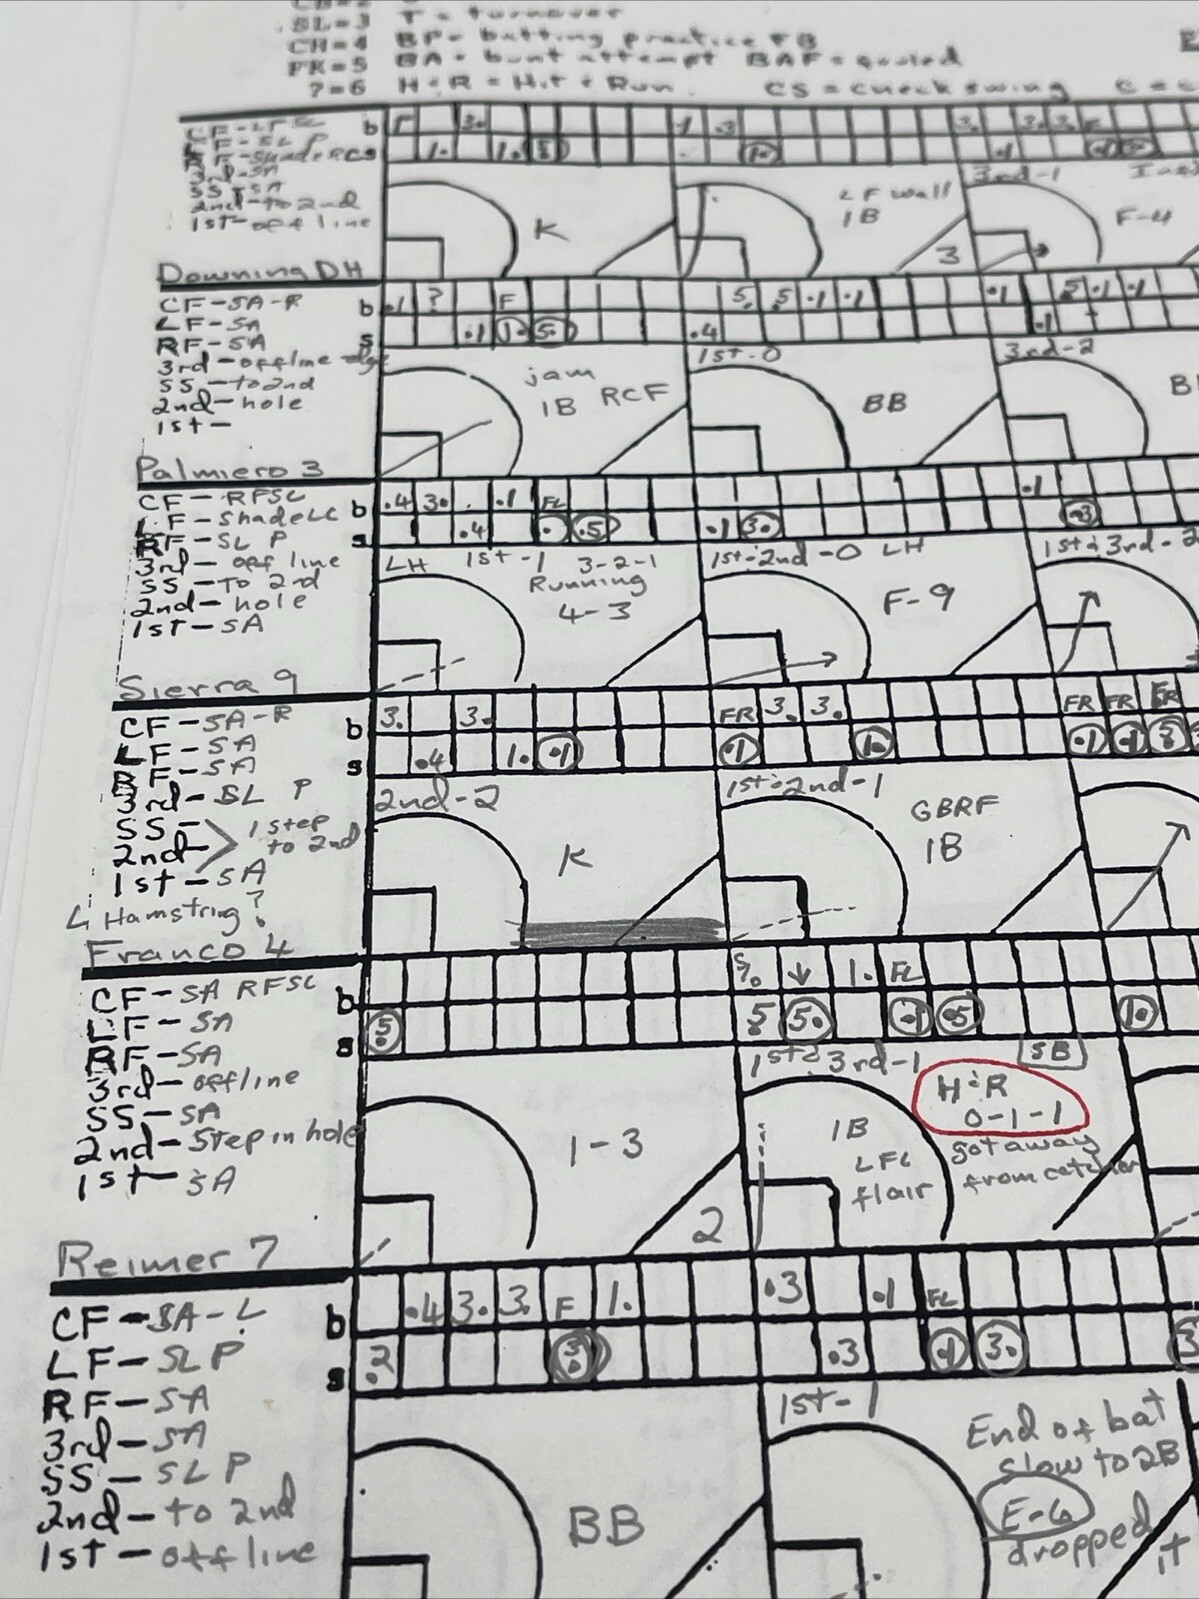 SL=3 T = turnover
CH=4 BP= batting practice FB
FK=5 BA = bunt attempt BAF = fouled
?=6 H & R = Hit & Run CS = check swing
CF-LF SL b
LF-SL P
RF-shade RC s
3rd-SA
SS-SA
2nd-to 2nd
1st-off line
K
LF wall
1B
3
3rd-1
F-4
Downing DH
CF-SA-R b .1 ? F
LF-SA
RF-SA s .1 1. 5. .4
5. .5 .1 .1
.1 5 .1 .1
.1
3rd-offline edge
SS-to 2nd
2nd-hole
1st-
jam
1B RCF
1st-0
BB
3rd-2
Palmiero 3
CF-RFSL b .4 3. . .1 FL .1
LF-shade LC
RF-SL P s .4 . .5 .1 3. .3
3rd-off line
SS-to 2nd
2nd-hole
1st-SA
LH 1st-1 3-2-1
Running
4-3
1st&2nd-0 LH
F-9
1st&3rd-2
Sierra 9
CF-SA-R b 3. 3. FR 3. 3. FR FR FR
LF-SA
RF-SA s .4 1. .1 .1 1. .1 .1
3rd-SL P
SS-
2nd-
1 step
to 2nd
1st-SA
L Hamstring?
2nd-2
K
1st&2nd-1
GBRF
1B
Franco 4
CF-SA RFSL b 5. ↓ 1. FL
LF-SA s 5. 5 5. .1 .5 1.
RF-SA
3rd-offline
SS-SA
2nd-Step in hole
1st-SA
1-3
2
1st&3rd-1
SB
H&R
0-1-1
got away
from catcher
1B
LFL
flair
Reimer 7
CF-SA-L b .4 3. 3. F 1. .3 .1 FL
LF-SLP s .2 .3 .1 3. 3
RF-SA
3rd-SA
SS-SLP
2nd-to 2nd
1st-off line
BB
1st-1
End of bat
slow to 2B
E-6
dropped
it